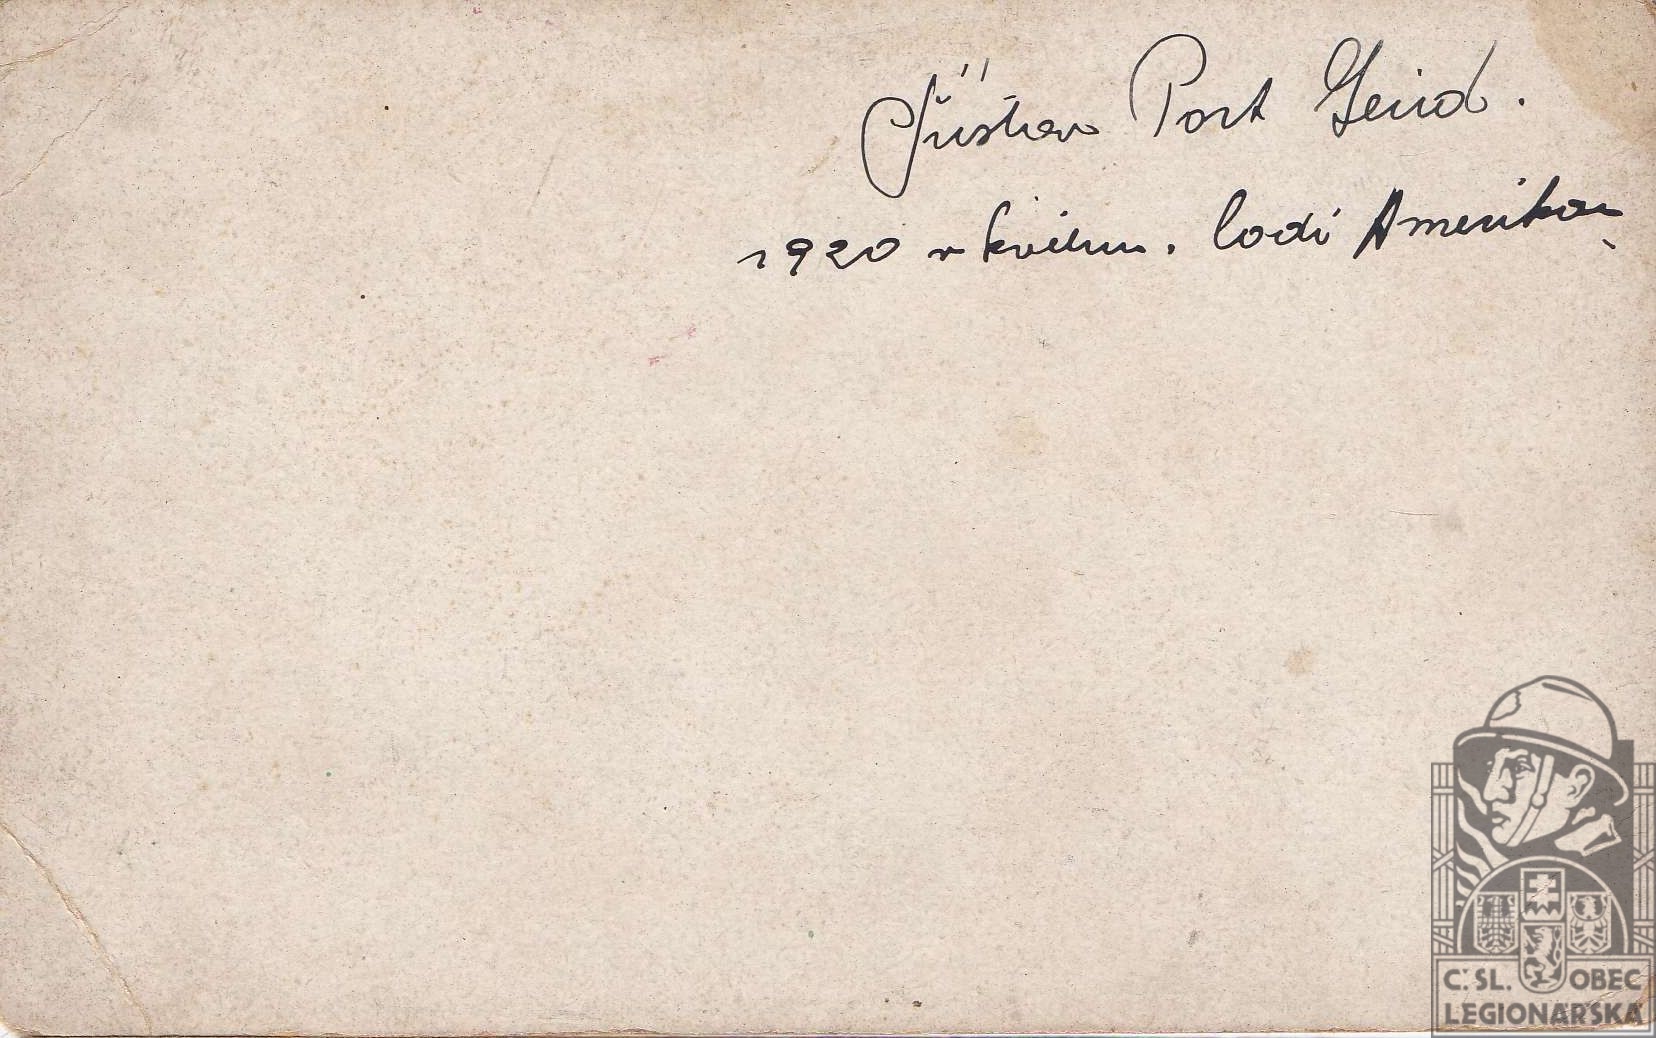 Přístav Port Seid.
1920 v květnu. lodí Amerikou
Č. SL. OBEC
LEGIONÁŘSKÁ